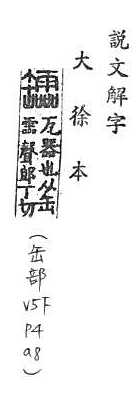 説文解字
大徐本
䍅 瓦器也从缶
霝聲郎丁切
(缶部 V5下 P4 a8)